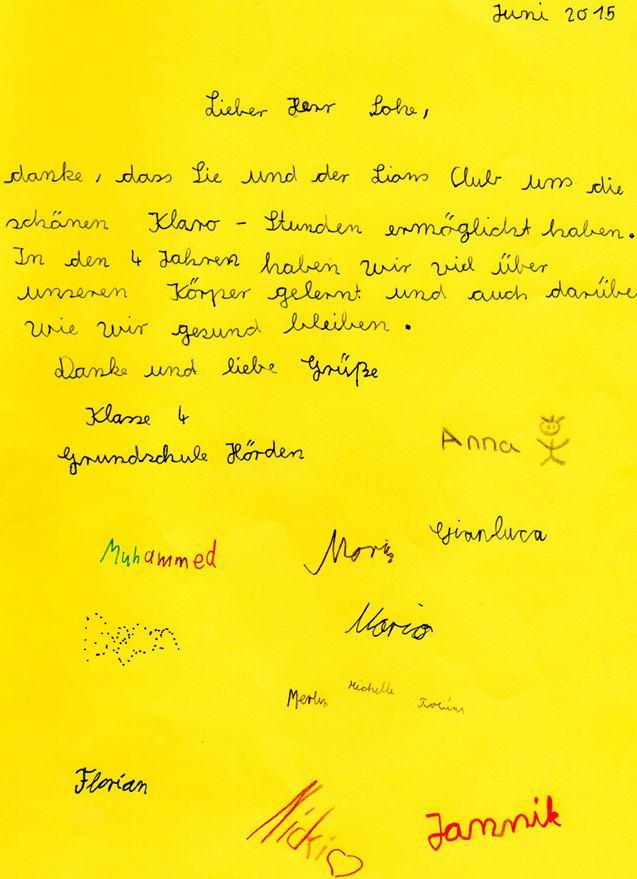 Juni 2015
Lieber Herr Lohe,
danke, dass Sie und der Lions Club uns die
schönen Klaro - Stunden ermöglicht haben.
In den 4 Jahren haben wir viel über
unseren Körper gelernt und auch darübe
wie wir gesund bleiben.
Danke und liebe Grüße
Klasse 4
Grundschule Hörden
Anna
Gianluca
Muhammed
Mario
Michelle
Merlin
Florian
Nicki
Jannik